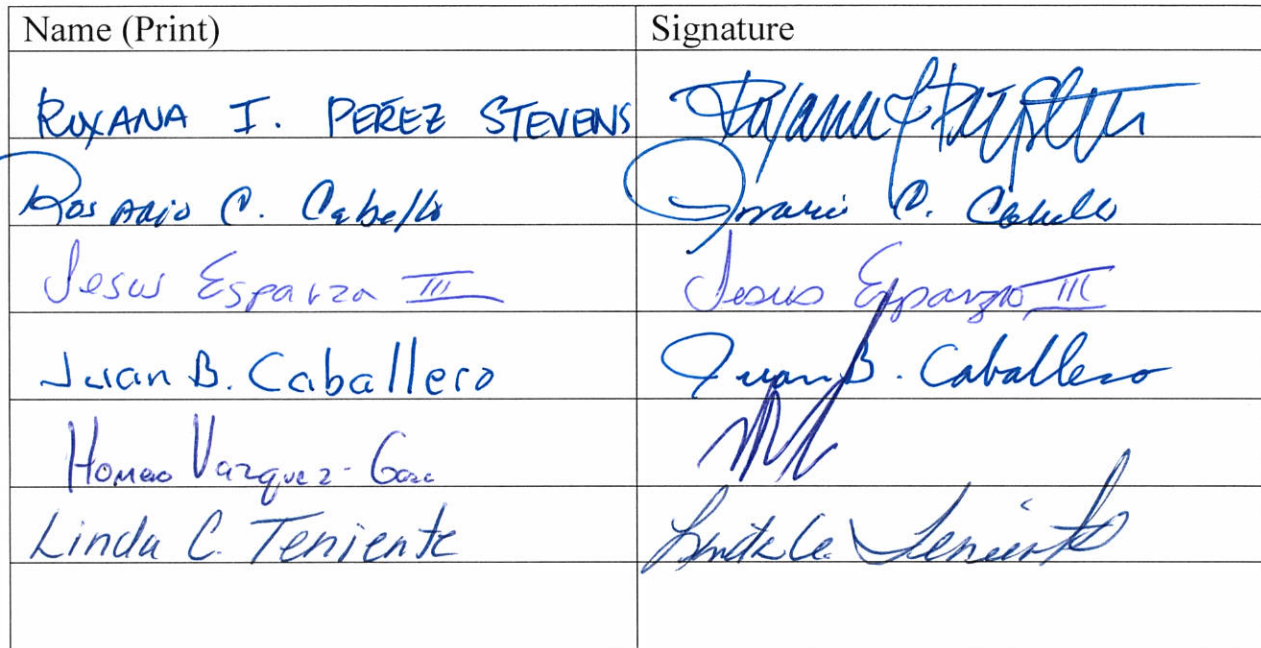 Name (Print) Signature
ROXANA I. PEREZ STEVENS
Rosario C. Cabello Rosario C. Cabello
Jesus Esparza III Jesus Esparza III
Juan B. Caballero Juan B. Caballero
Vazquez-
Linda C. Teniente Linda C. Teniente